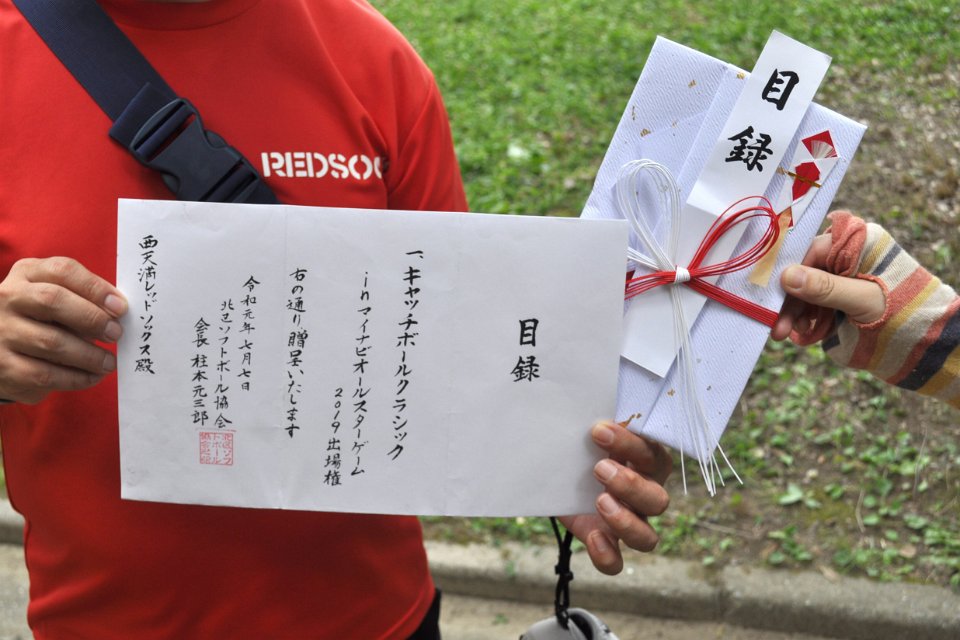 REDSO
目録
目録
一、キャッチボールクラシック
inマイナビオールスターゲーム
2019出場権
右の通り贈呈いたします
令和元年七月七日
北区ソフトボール協会
会長 柱本元三郎
西天満レッドソックス殿